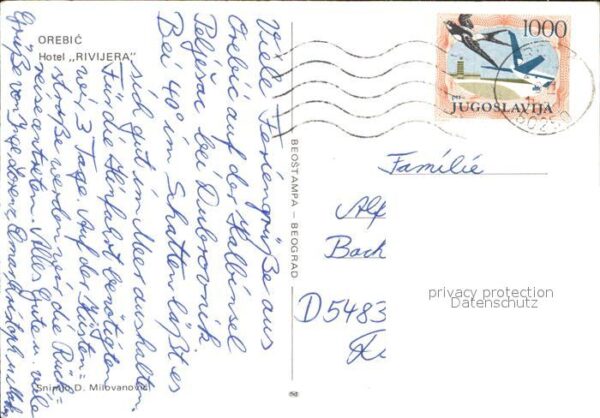 OREBIĆ
Hotel „RIVIJERA"
Viele Feriengrüße aus
Orebić auf der Halbinsel
Pelješac bei Dubrovnik
Bei 40° im Schatten läßt es
sich gut im Meer aushalten.
Für die Herfahrt benötigten
wir 3 Tage. Auf der Küsten=
straße werden wir die Rück=
reise antreten. Alles Gute u. viele
Grüße von Inge, Lorenz, Elmar, Christoph u.
Snimio D. Milovanović
BEOŠTAMPA – BEOGRAD
1000
JUGOSLAVIJA
Familie
Alf
Bach
D5483
privacy protection
Datenschutz